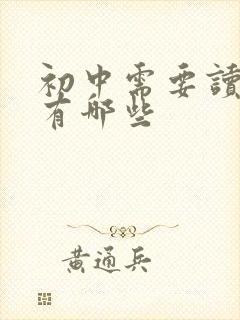 初中需要讀
有哪些
黄通兵